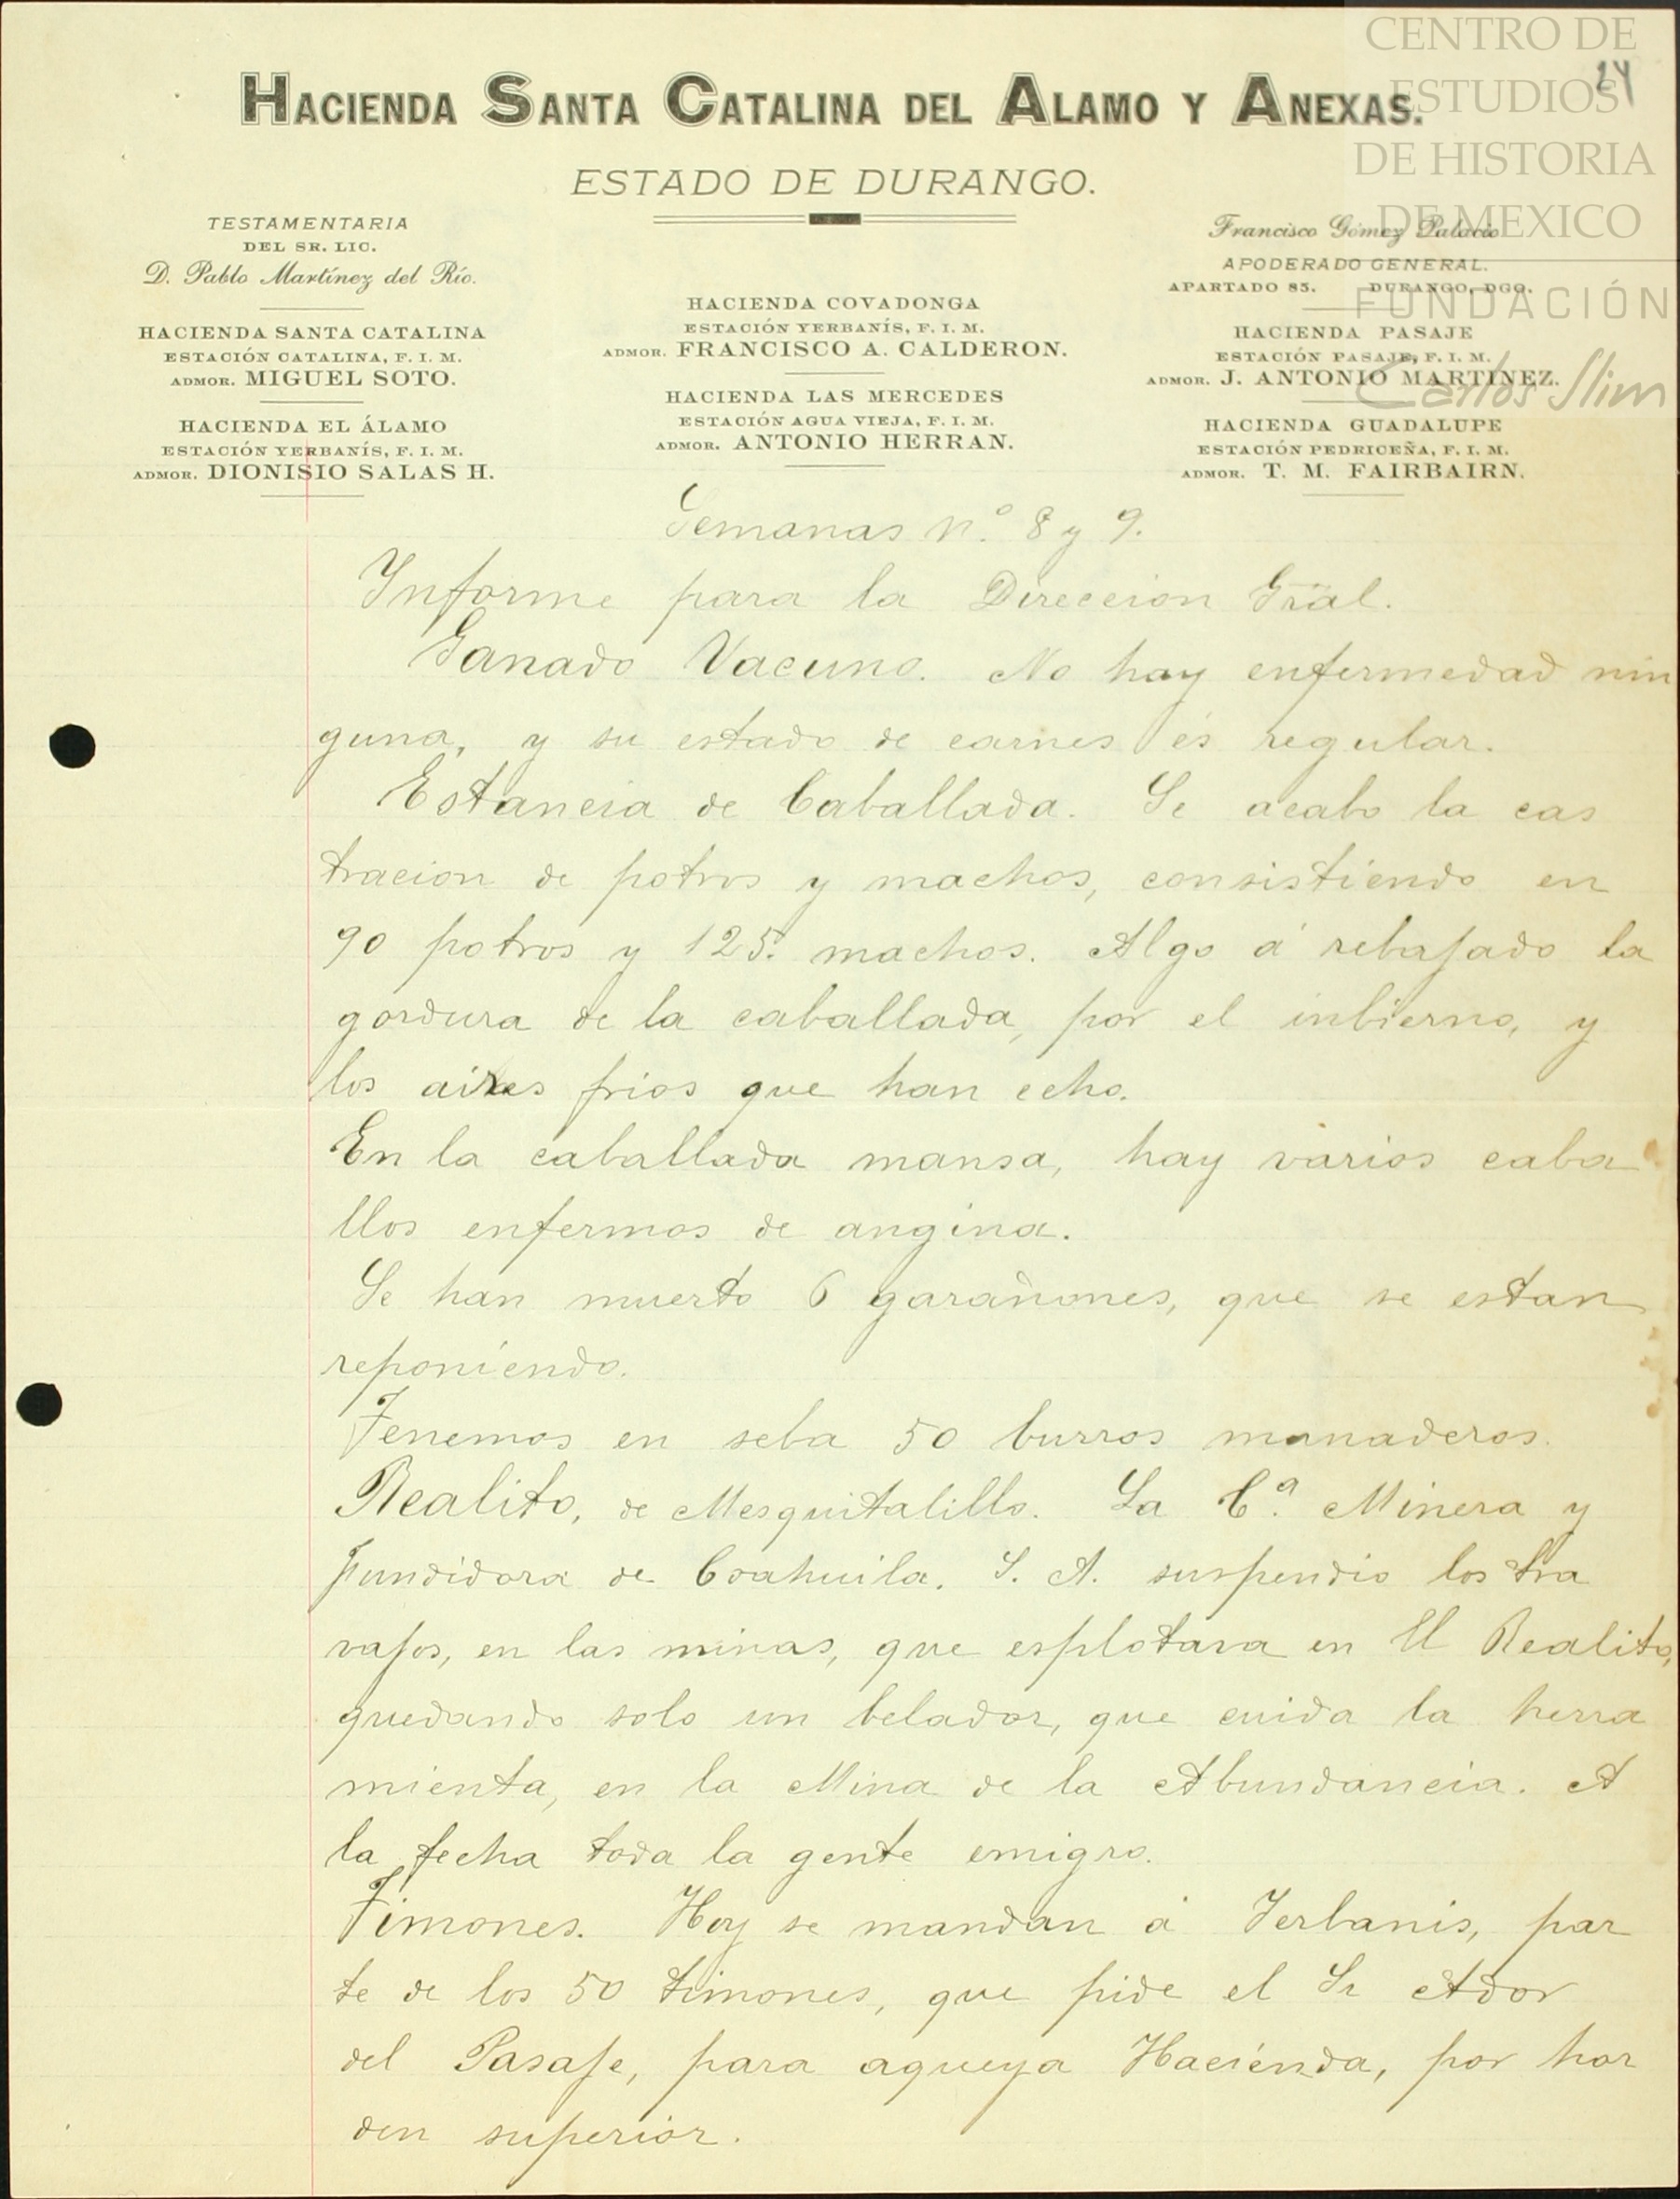 CENTRO DE
ESTUDIOS
DE HISTORIA
DE MEXICO
FUNDACIÓN
Carlos Slim
24
HACIENDA SANTA CATALINA DEL ALAMO Y ANEXAS.
ESTADO DE DURANGO.
TESTAMENTARIA
DEL SR. LIC.
D. Pablo Martínez del Río.
HACIENDA SANTA CATALINA
ESTACIÓN CATALINA, F. I. M.
ADMOR. MIGUEL SOTO.
HACIENDA EL ÁLAMO
ESTACIÓN YERBANÍS, F. I. M.
ADMOR. DIONISIO SALAS H.
HACIENDA COVADONGA
ESTACIÓN YERBANÍS, F. I. M.
ADMOR. FRANCISCO A. CALDERON.
HACIENDA LAS MERCEDES
ESTACIÓN AGUA VIEJA, F. I. M.
ADMOR. ANTONIO HERRAN.
Francisco Gómez Palacio
APODERADO GENERAL.
APARTADO 85. DURANGO, DGO.
HACIENDA PASAJE
ESTACIÓN PASAJE, F. I. M.
ADMOR. J. ANTONIO MARTINEZ.
HACIENDA GUADALUPE
ESTACIÓN PEDRICEÑA, F. I. M.
ADMOR. T. M. FAIRBAIRN.
Semanas n.º 8 y 9.
Informe para la Direccion Gral.
Ganado Vacuno. No hay enfermedad nin
guna, y su estado de carnes és regular.
Estancia de Caballada. Se acabo la cas
tracion de potros y machos, consistiendo en
90 potros y 125. machos. Algo á rebajado la
gordura de la caballada, por el inbierno, y
los aires frios que han echo.
En la caballada mansa, hay varios caba
llos enfermos de angina.
Se han muerto 6 garañones, que se estan
reponiendo.
Tenemos en seba 50 burros manaderos.
Realito, de Mesquitalillo. La C.ª Minera y
Fundidora de Coahuila. S. A. suspendio los tra
vajos, en las minas, que esplotara en El Realito,
quedando solo un belador, que cuida la herra
mienta, en la Mina de la Abundancia. A
la fecha toda la gente emigro.
Timones. Hoy se mandan á Yerbanis, par
te de los 50 timones, que pide el Sr Ador
del Pasaje, para aqueya Haciénda, por hor
den superior.